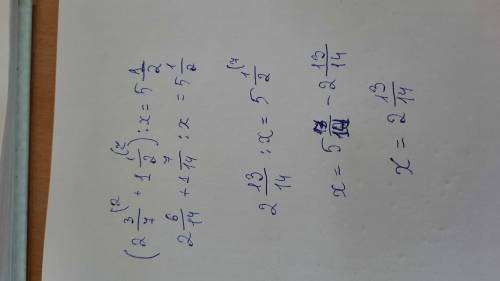 (2 3/7 (2 + 1 1/2 (7) : x = 5 1/2
2 6/14 + 1 7/14 : x = 5 1/2
2 13/14 : x = 5 1/2 (7
x = 5 - 2 13/14
x = 2 13/14